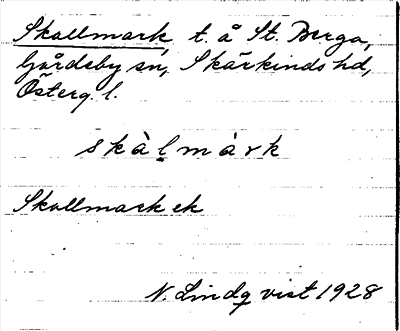 Skallmark, t. å St. Berga,
Gårdeby sn, Skärkinds hd,
Österg. l.
skàl̤màrk
Skallmark ek
N. Lindqvist 1928